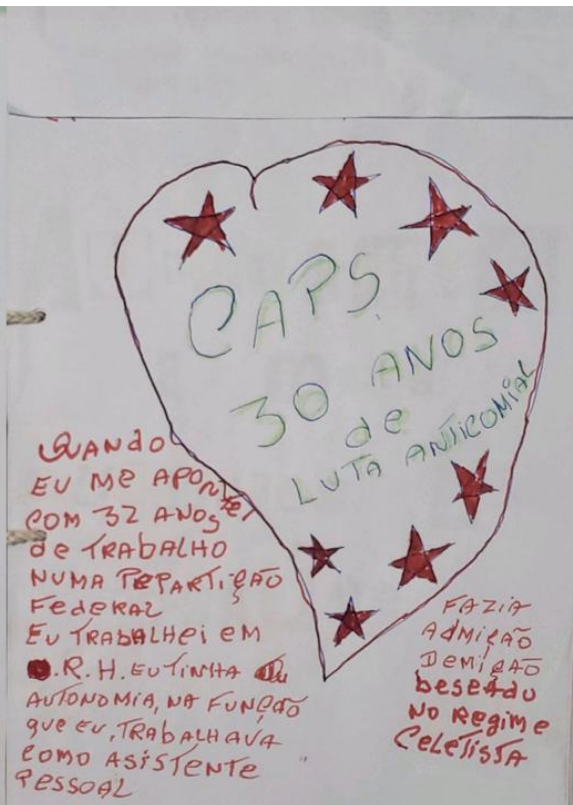 CAPS
30 ANOS
de
LUTA ANTICOMIAL
QUANdO
EU Me APONTEI
COM 32 ANOS
de TRABALHO
NUMA REPARTIÇÃO
FedeRAL
EU TRABALHei eM
R.H. EU TINHA
AUTONOMIA, NA FUNÇÃO
que EU, TRABALHAVA
COMO ASISTENTE
PESSOAL
FAZIA
AdMIÇÃO
DEMIÇÃO
beseAdo
NO RegIMe
CeLeTISTA